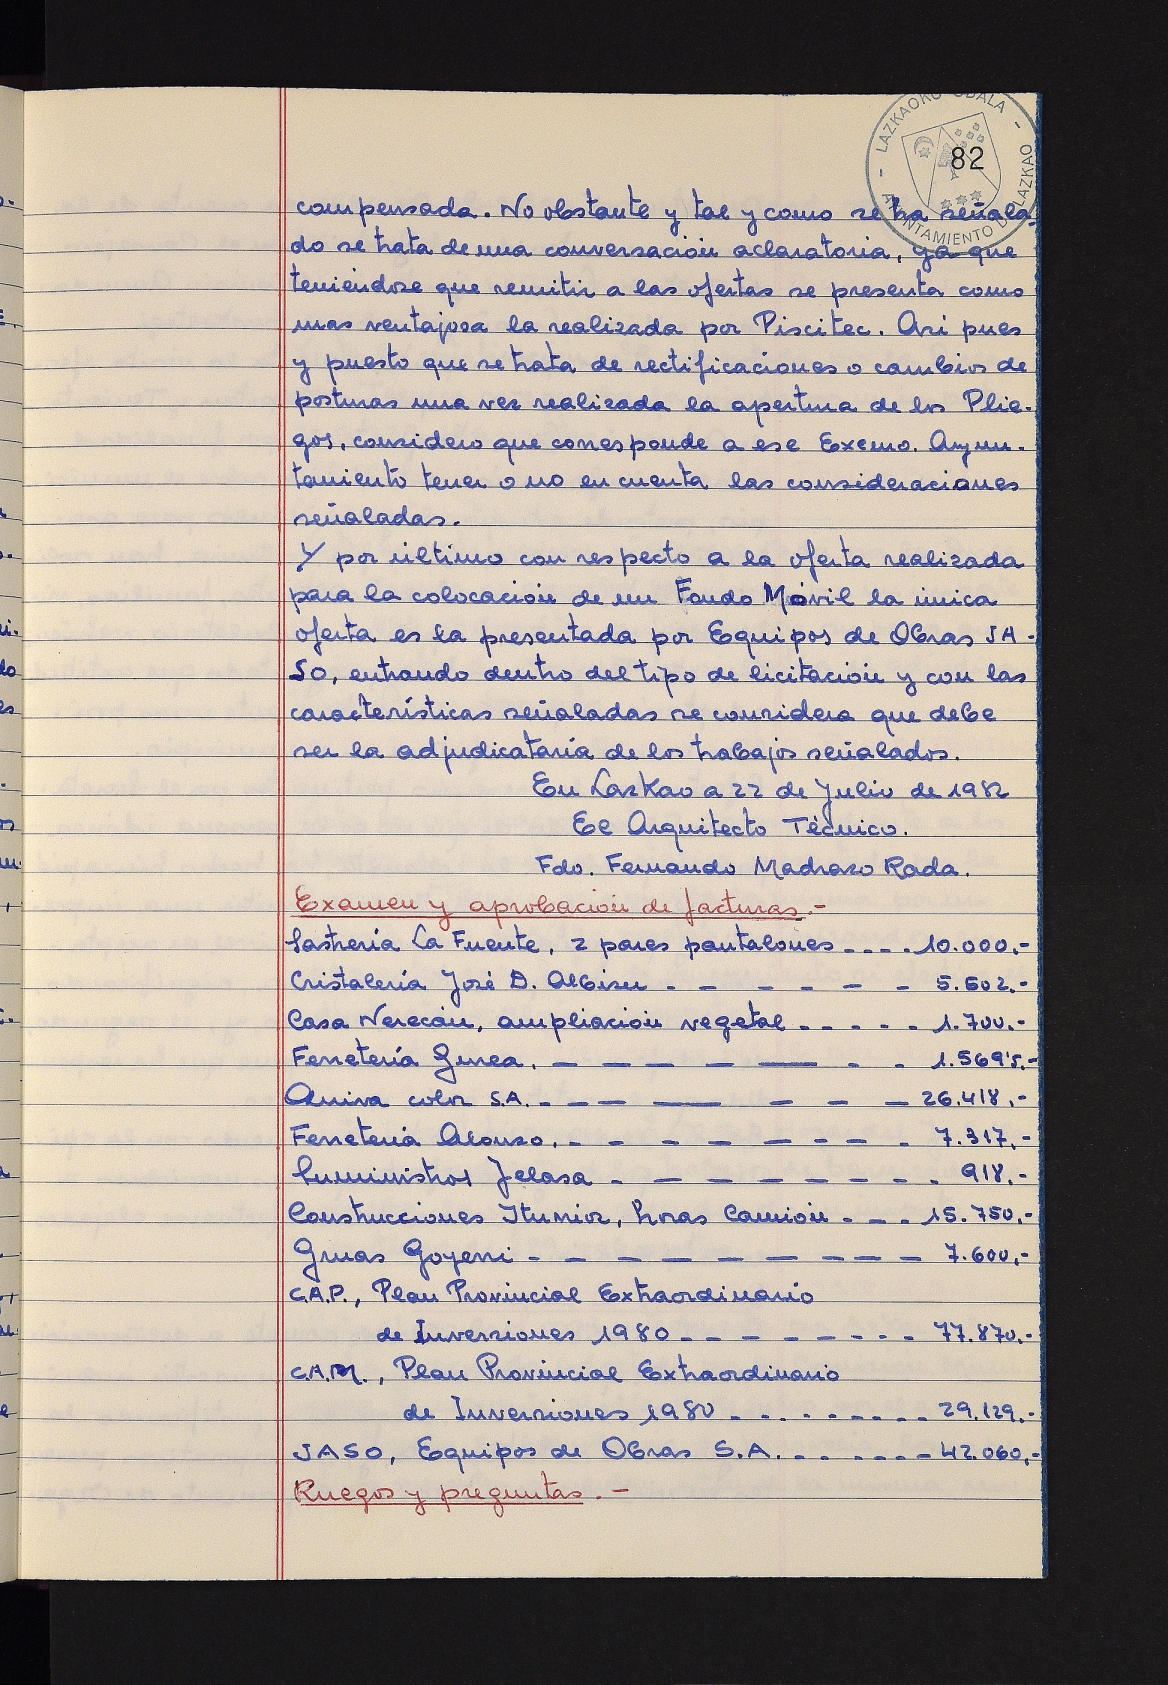 LAZKAOKO UDALA - AYUNTAMIENTO DE LAZKAO -
82
compensada. No obstante y tal y como se ha señala-
do se trata de una conversación aclaratoria, ya que
teniéndose que remitir a las ofertas se presenta como
mas ventajosa la realizada por Piscitec. Asi pues
y puesto que se trata de rectificaciones o cambios de
posturas una vez realizada la apertura de los Plie-
gos, considero que corresponde a ese Excmo. Ayun-
tamiento tener o no en cuenta las consideraciones
señaladas.
Y por último con respecto a la oferta realizada
para la colocación de un Fondo Móvil la única
oferta es la presentada por Equipos de Obras JA-
SO, entrando dentro del tipo de licitación y con las
características señaladas se considera que debe
ser la adjudicataria de los trabajos señalados.
En Lazkao a 22 de Julio de 1982
El Arquitecto Técnico.
Fdo. Fernando Madrazo Rada.
Examen y aprobación de facturas.-
Sastrería La Fuente, 2 pares pantalones ---- 10.000.-
Cristalería José D. Albisu - - - - - - 5.602.-
Casa Nerecán, ampliación vegetal - - - - - 1.700.-
Ferretería Gurea. - - - - - - - 1.569'5.-
Arriva color S.A. - - - - - - - 26.418.-
Ferretería Alonso. - - - - - - - - 7.317.-
Suministros Jelasa - - - - - - - - 918.-
Construcciones Iturrioz, horas Camión - - - 15.750.-
Gruas Goyerri - - - - - - - - - 7.600,-
C.A.P., Plan Provincial Extraordinario
de Inversiones 1980 - - - - - - - - 77.870.-
C.A.M., Plan Provincial Extraordinario
de Inversiones 1980 - - - - - - - - - 29.129.-
JASO, Equipos de Obras S.A. - - - - - - - 42.060,-
Ruegos y preguntas.-